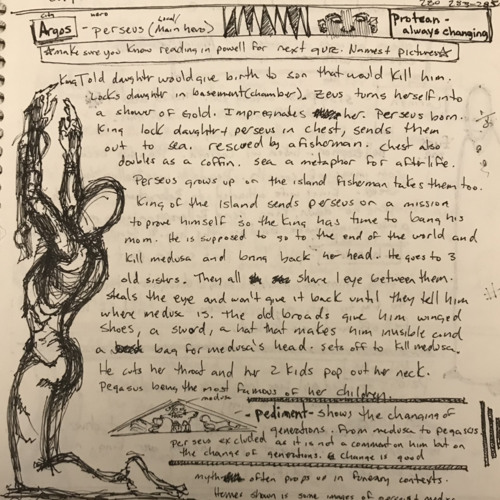 city
hero
Local/
280 283-285
Argos - perseus (Main hero)
Protean - always changing
*make sure you know reading in powell for next quiz. Names + pictures*
King Told daughter would give birth to son that would kill him.
Locks daughter in basement (chamber). Zeus turns herself into
a shower of Gold. Impregnates her. Perseus born.
King lock daughter + perseus in chest, sends them
out to sea. rescued by a fisherman. chest also
doubles as a coffin. sea a metaphor for afterlife.
Perseus grows up on the island fisherman takes them too.
King of the island sends perseus on a mission
to prove himself so the King has time to bang his
mom. He is supposed to go to the end of the world and
Kill medusa and bring back her head. He goes to 3
old sisters. They all share 1 eye between them.
steals the eye and won't give it back until they tell him
where medusa is. the old broads give him winged
shoes, a sword, a hat that makes him invisible and
a bag for medusa's head. sets off to kill medusa.
He cuts her throat and her 2 kids pop out her neck.
Pegasus being the most famous of her children.
medusa
- pediment - shows the changing of
generations. From medusa to pegasus.
perseus excluded as it is not a comment on him but on
the change of generations. & change is good
myth often props up in funerary contexts.
Hermes shown is some images of perseus + medusa